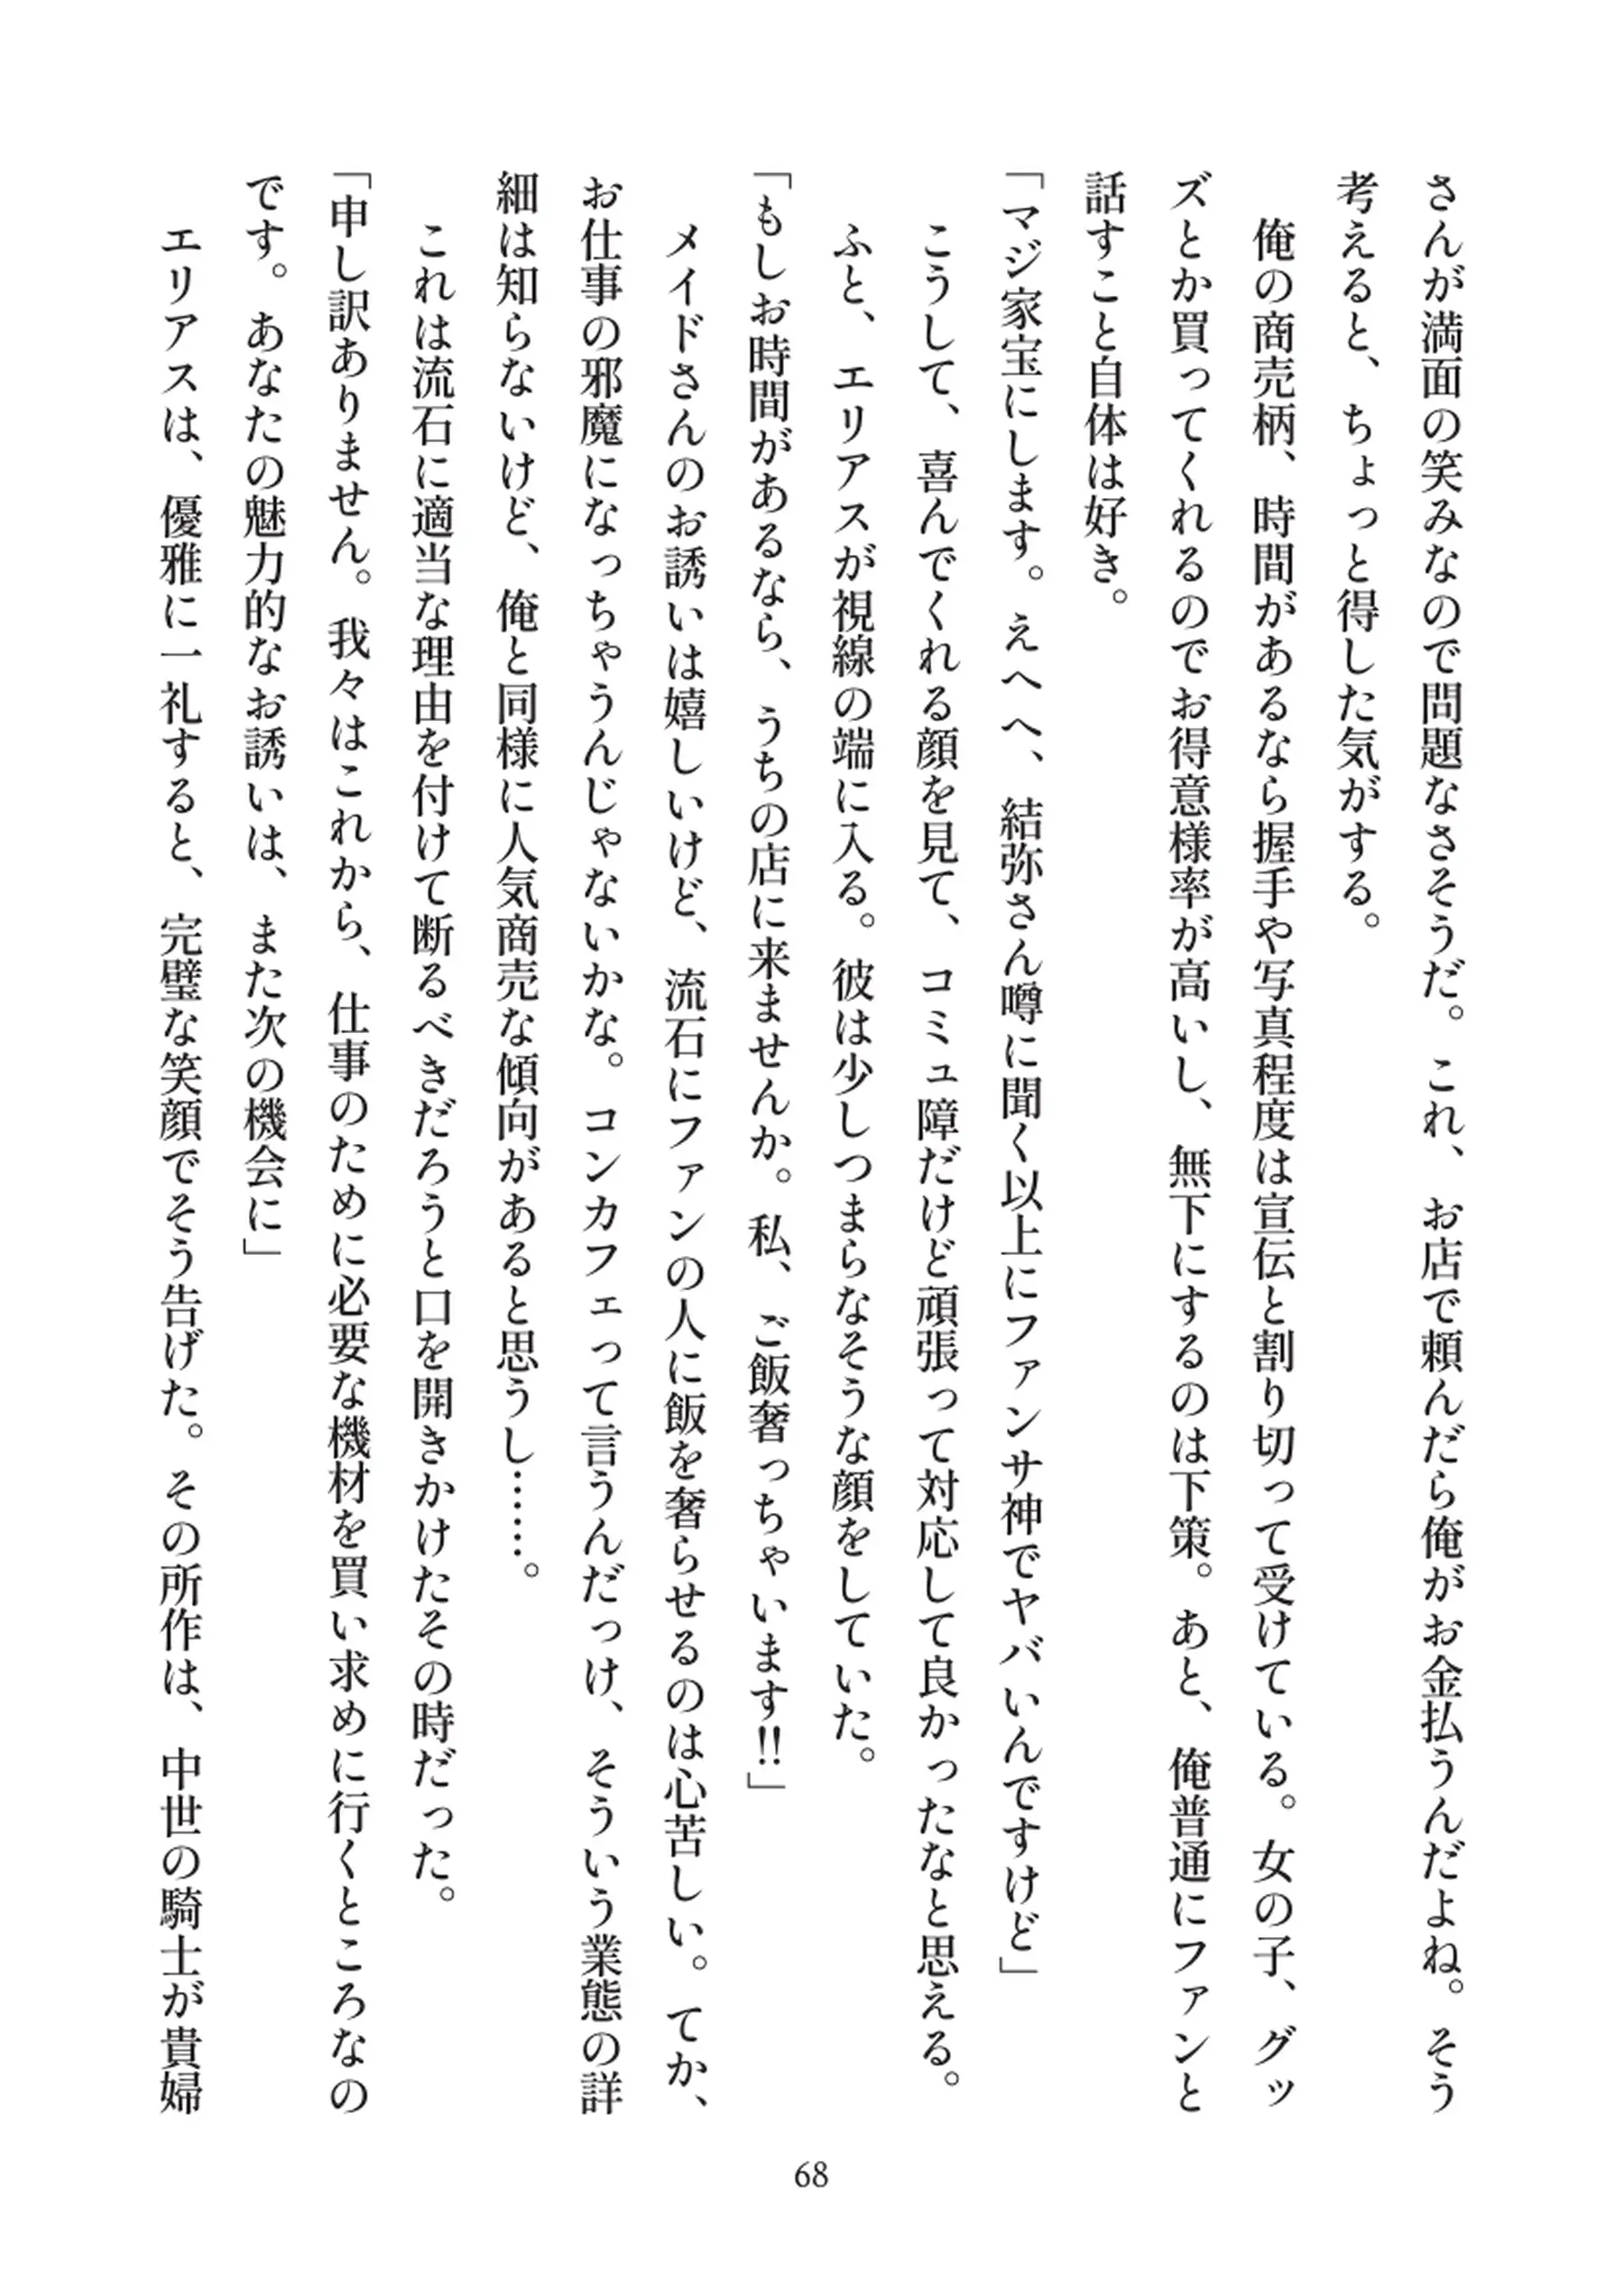 さんが満面の笑みなので問題なさそうだ。これ、お店で頼んだら俺がお金払うんだよね。そう
考えると、ちょっと得した気がする。
　俺の商売柄、時間があるなら握手や写真程度は宣伝と割り切って受けている。女の子、グッ
ズとか買ってくれるのでお得意様率が高いし、無下にするのは下策。あと、俺普通にファンと
話すこと自体は好き。
「マジ家宝にします。えへへ、結弥さん噂に聞く以上にファンサ神でヤバいんですけど」
　こうして、喜んでくれる顔を見て、コミュ障だけど頑張って対応して良かったなと思える。
　ふと、エリアスが視線の端に入る。彼は少しつまらなそうな顔をしていた。
「もしお時間があるなら、うちの店に来ませんか。私、ご飯奢っちゃいます‼」
　メイドさんのお誘いは嬉しいけど、流石にファンの人に飯を奢らせるのは心苦しい。てか、
お仕事の邪魔になっちゃうんじゃないかな。コンカフェって言うんだっけ、そういう業態の詳
細は知らないけど、俺と同様に人気商売な傾向があると思うし……。
　これは流石に適当な理由を付けて断るべきだろうと口を開きかけたその時だった。
「申し訳ありません。我々はこれから、仕事のために必要な機材を買い求めに行くところなの
です。あなたの魅力的なお誘いは、また次の機会に」
　エリアスは、優雅に一礼すると、完璧な笑顔でそう告げた。その所作は、中世の騎士が貴婦
68